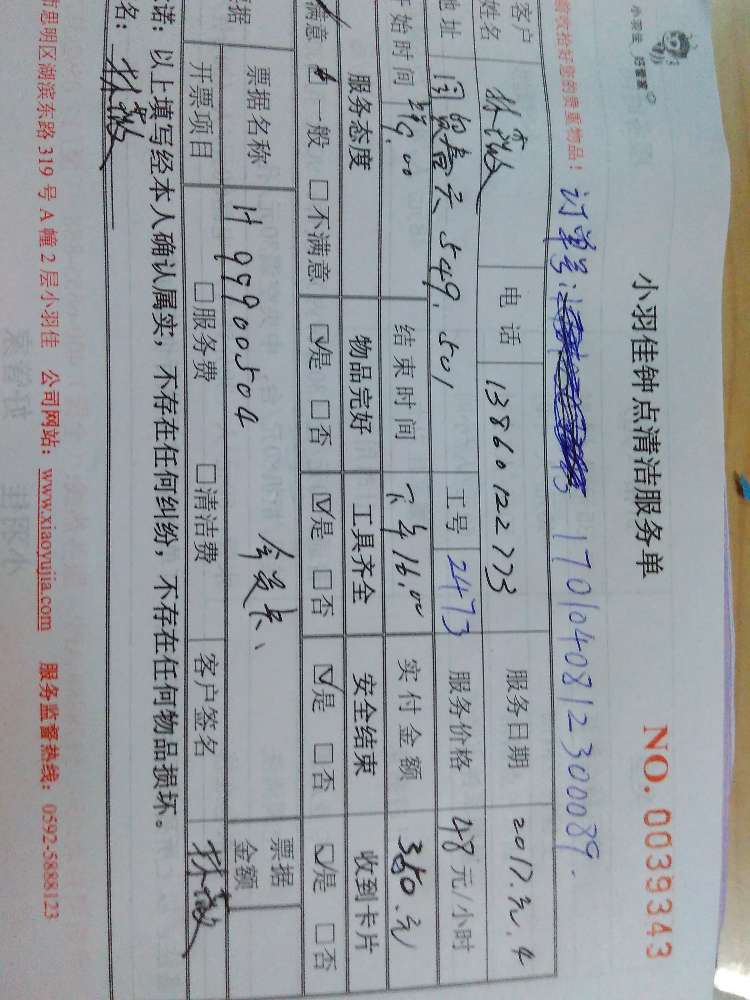 小羽佳 好管家
小羽佳钟点清洁服务单
NO. 0039343
收拾好您的贵重物品! 订单号: 1701040812300089.
客户姓名 电话 13860122773 服务日期 2017.元.4
地址 549.501 工号 2473 服务价格 48元/小时
开始时间 9.00 结束时间 下午16.00 实付金额 380.元
服务态度 物品完好 工具齐全 安全结束 收到卡片
满意 一般 □不满意 ☑是 □否 ☑是 □否 ☑是 □否 ☑是 □否
票据 票据名称 99900504 会员卡、 票据金额
开票项目 □服务费 □清洁费 客户签名
诺：以上填写经本人确认属实，不存在任何纠纷，不存在任何物品损坏。
名：
市思明区湖滨东路 319 号 A 幢 2 层小羽佳 公司网站：www.xiaoyujia.com 服务监督热线：0592-5888123